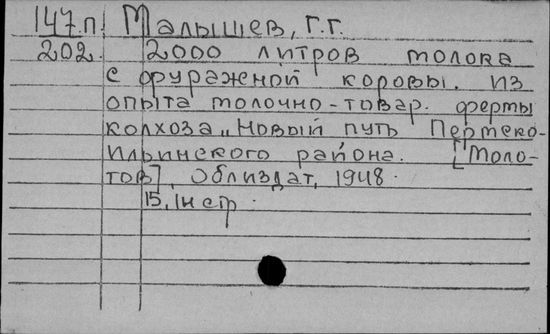 147.п. Малышев, Г.Г.
202. 2000 литров молока
с фуражной коровы. Из
опыта молочно-товар. фермы
колхоза „Новый путь Пермско-
Ильинского района. [Моло-
тов], Облиздат, 1948.
15, Iн стр.